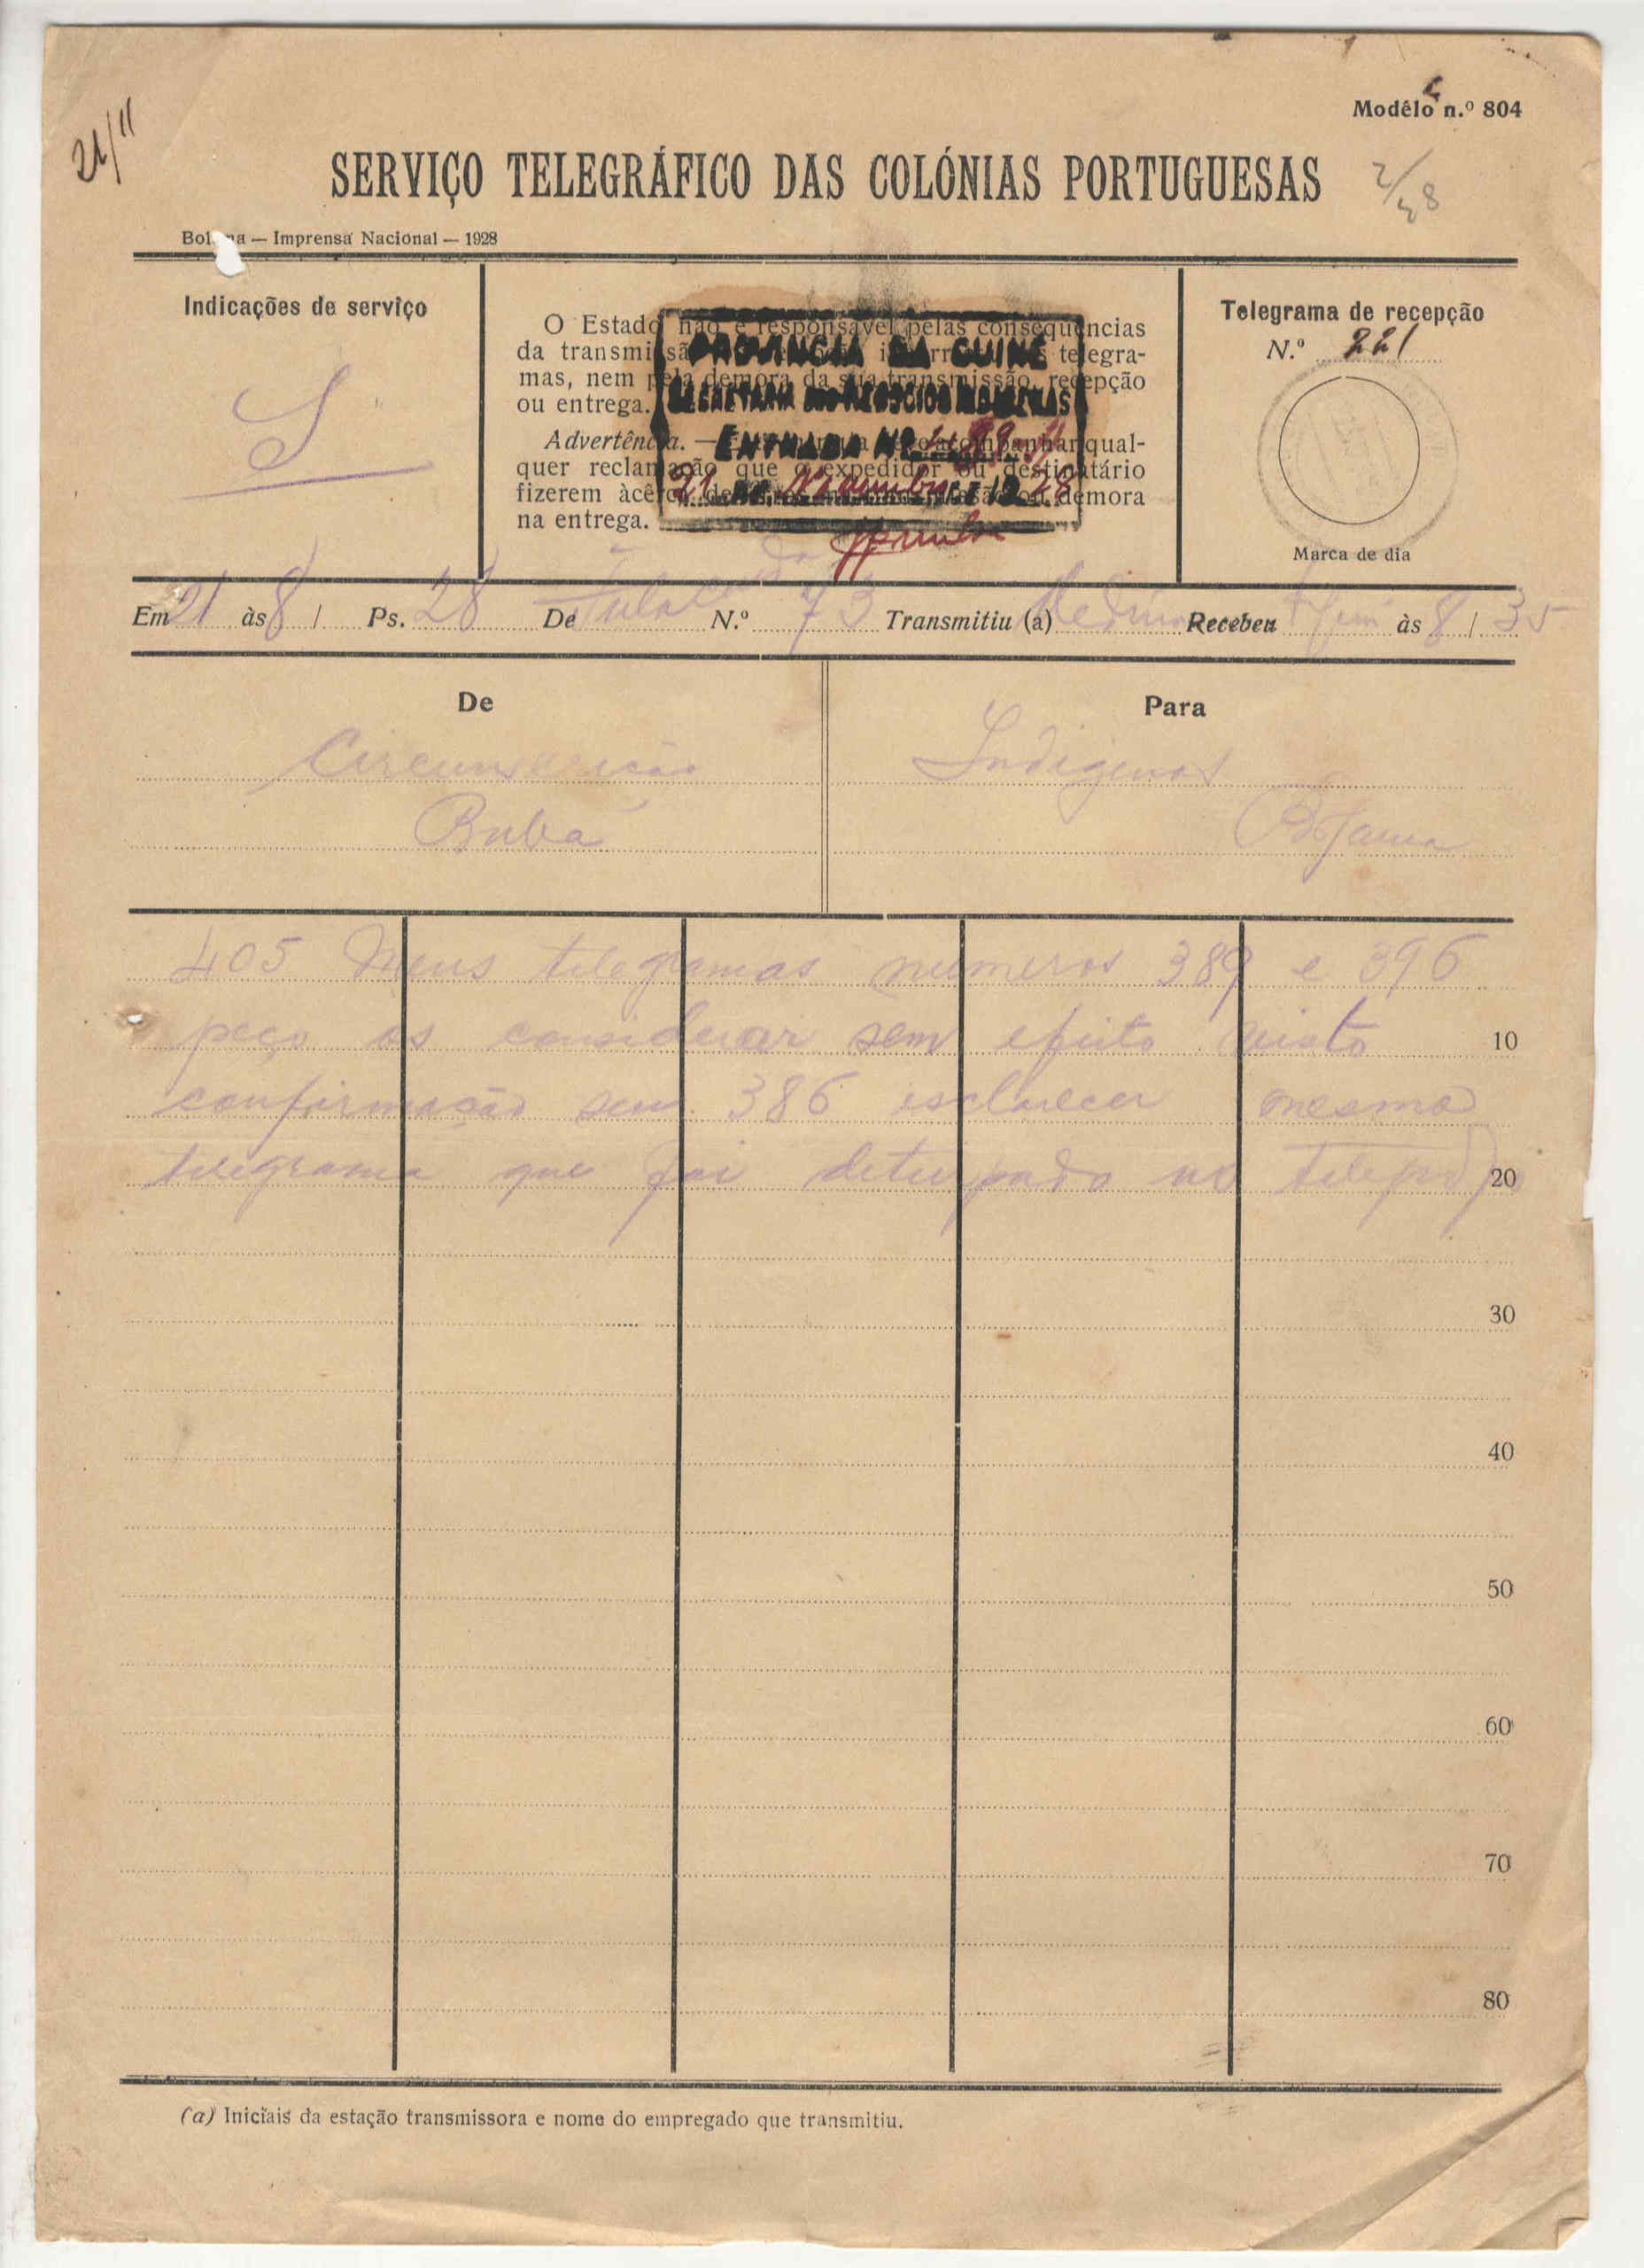 21/11
Modêlo n.º 804
SERVIÇO TELEGRÁFICO DAS COLÓNIAS PORTUGUESAS
Imprensa Nacional — 1928
Indicações de serviço
S
O Estado não é responsável pelas consequências
da transmissão telegra-
mas, nem pela demora da sua transmissão, recepção
ou entrega.
Advertência. — qual-
quer reclamação que o expedidor ou destinatário
fizerem àcêrca demora
na entrega.
PROVINCIA DA GUINÉ
SECRETARIA DOS NEGOCIOS INDIGENAS
ENTRADA Nº
21 DE Novembro DE 1928
Telegrama de recepção
N.º 221
Marca de dia
Em 21 às 8 / Ps. 28 De N.º 73 Transmitiu (a) Recebeu às 8 / 35
De
Circunscrição
Buba
Para
Indigenas
Bolama
405 Meus telegramas numeros 389 e 396
peço os considerar sem efeito visto 10
confirmação seu 386 esclarecer mesmo
telegrama que foi deturpado no 20
30
40
50
60
70
80
(a) Iniciais da estação transmissora e nome do empregado que transmitiu.